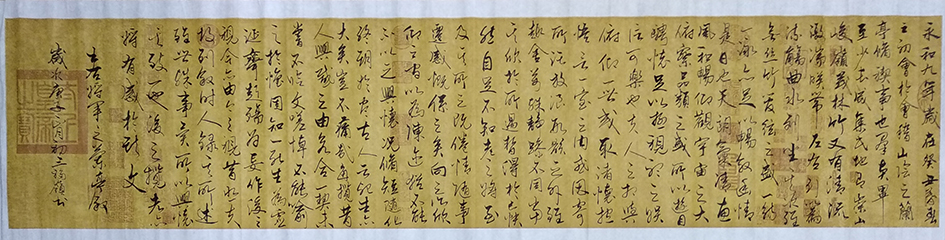 永和九年歲在癸丑暮春
之初會於會稽山陰之蘭
亭脩禊事也羣賢畢
至少長咸集此地有崇山
峻嶺茂林脩竹又有清流
激湍暎帶左右引以為
流觴曲水列坐其次雖
無絲竹管弦之盛一觴
一詠亦足以暢敘幽情
是日也天朗氣清惠
風和暢仰觀宇宙之大
俯察品類之盛所以遊目
騁懷足以極視聽之娛
信可樂也夫人之相與
俯仰一世或取諸懷抱
悟言一室之內或因寄
所託放浪形骸之外雖
趣舍萬殊靜躁不同當
其欣於所遇暫得於己快
然自足不知老之將至
及其所之既倦情隨事
遷感慨係之矣向之所欣
俛仰之間以為陳迹猶不能
不以之興懷況脩短隨化
終期於盡古人云死生亦
大矣豈不痛哉每攬昔
人興感之由若合一契未
嘗不臨文嗟悼不能喻
之於懷固知一死生為虛
誕齊彭殤為妄作後之
視今亦由今之視昔悲夫
故列敘時人錄其所述
雖世殊事異所以興懷
其致一也後之攬者亦
將有感於斯文
右將軍王羲之蘭亭敘
歲次庚子二月初三 書